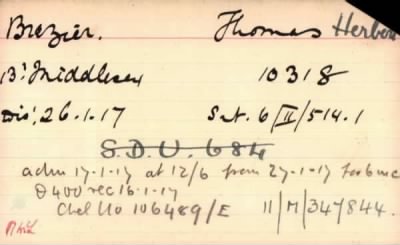 Brezier. Thomas Herbert
13' Middlesex 10318
Dis', 26.1.17 Set. 6/II/514.1
S.D.U. 684
adm 17-1-17 at 12/6 from 27-1-17 for 6 mc
D400 rec 16-1-17
Chel No 106489/E 11/M/347844.